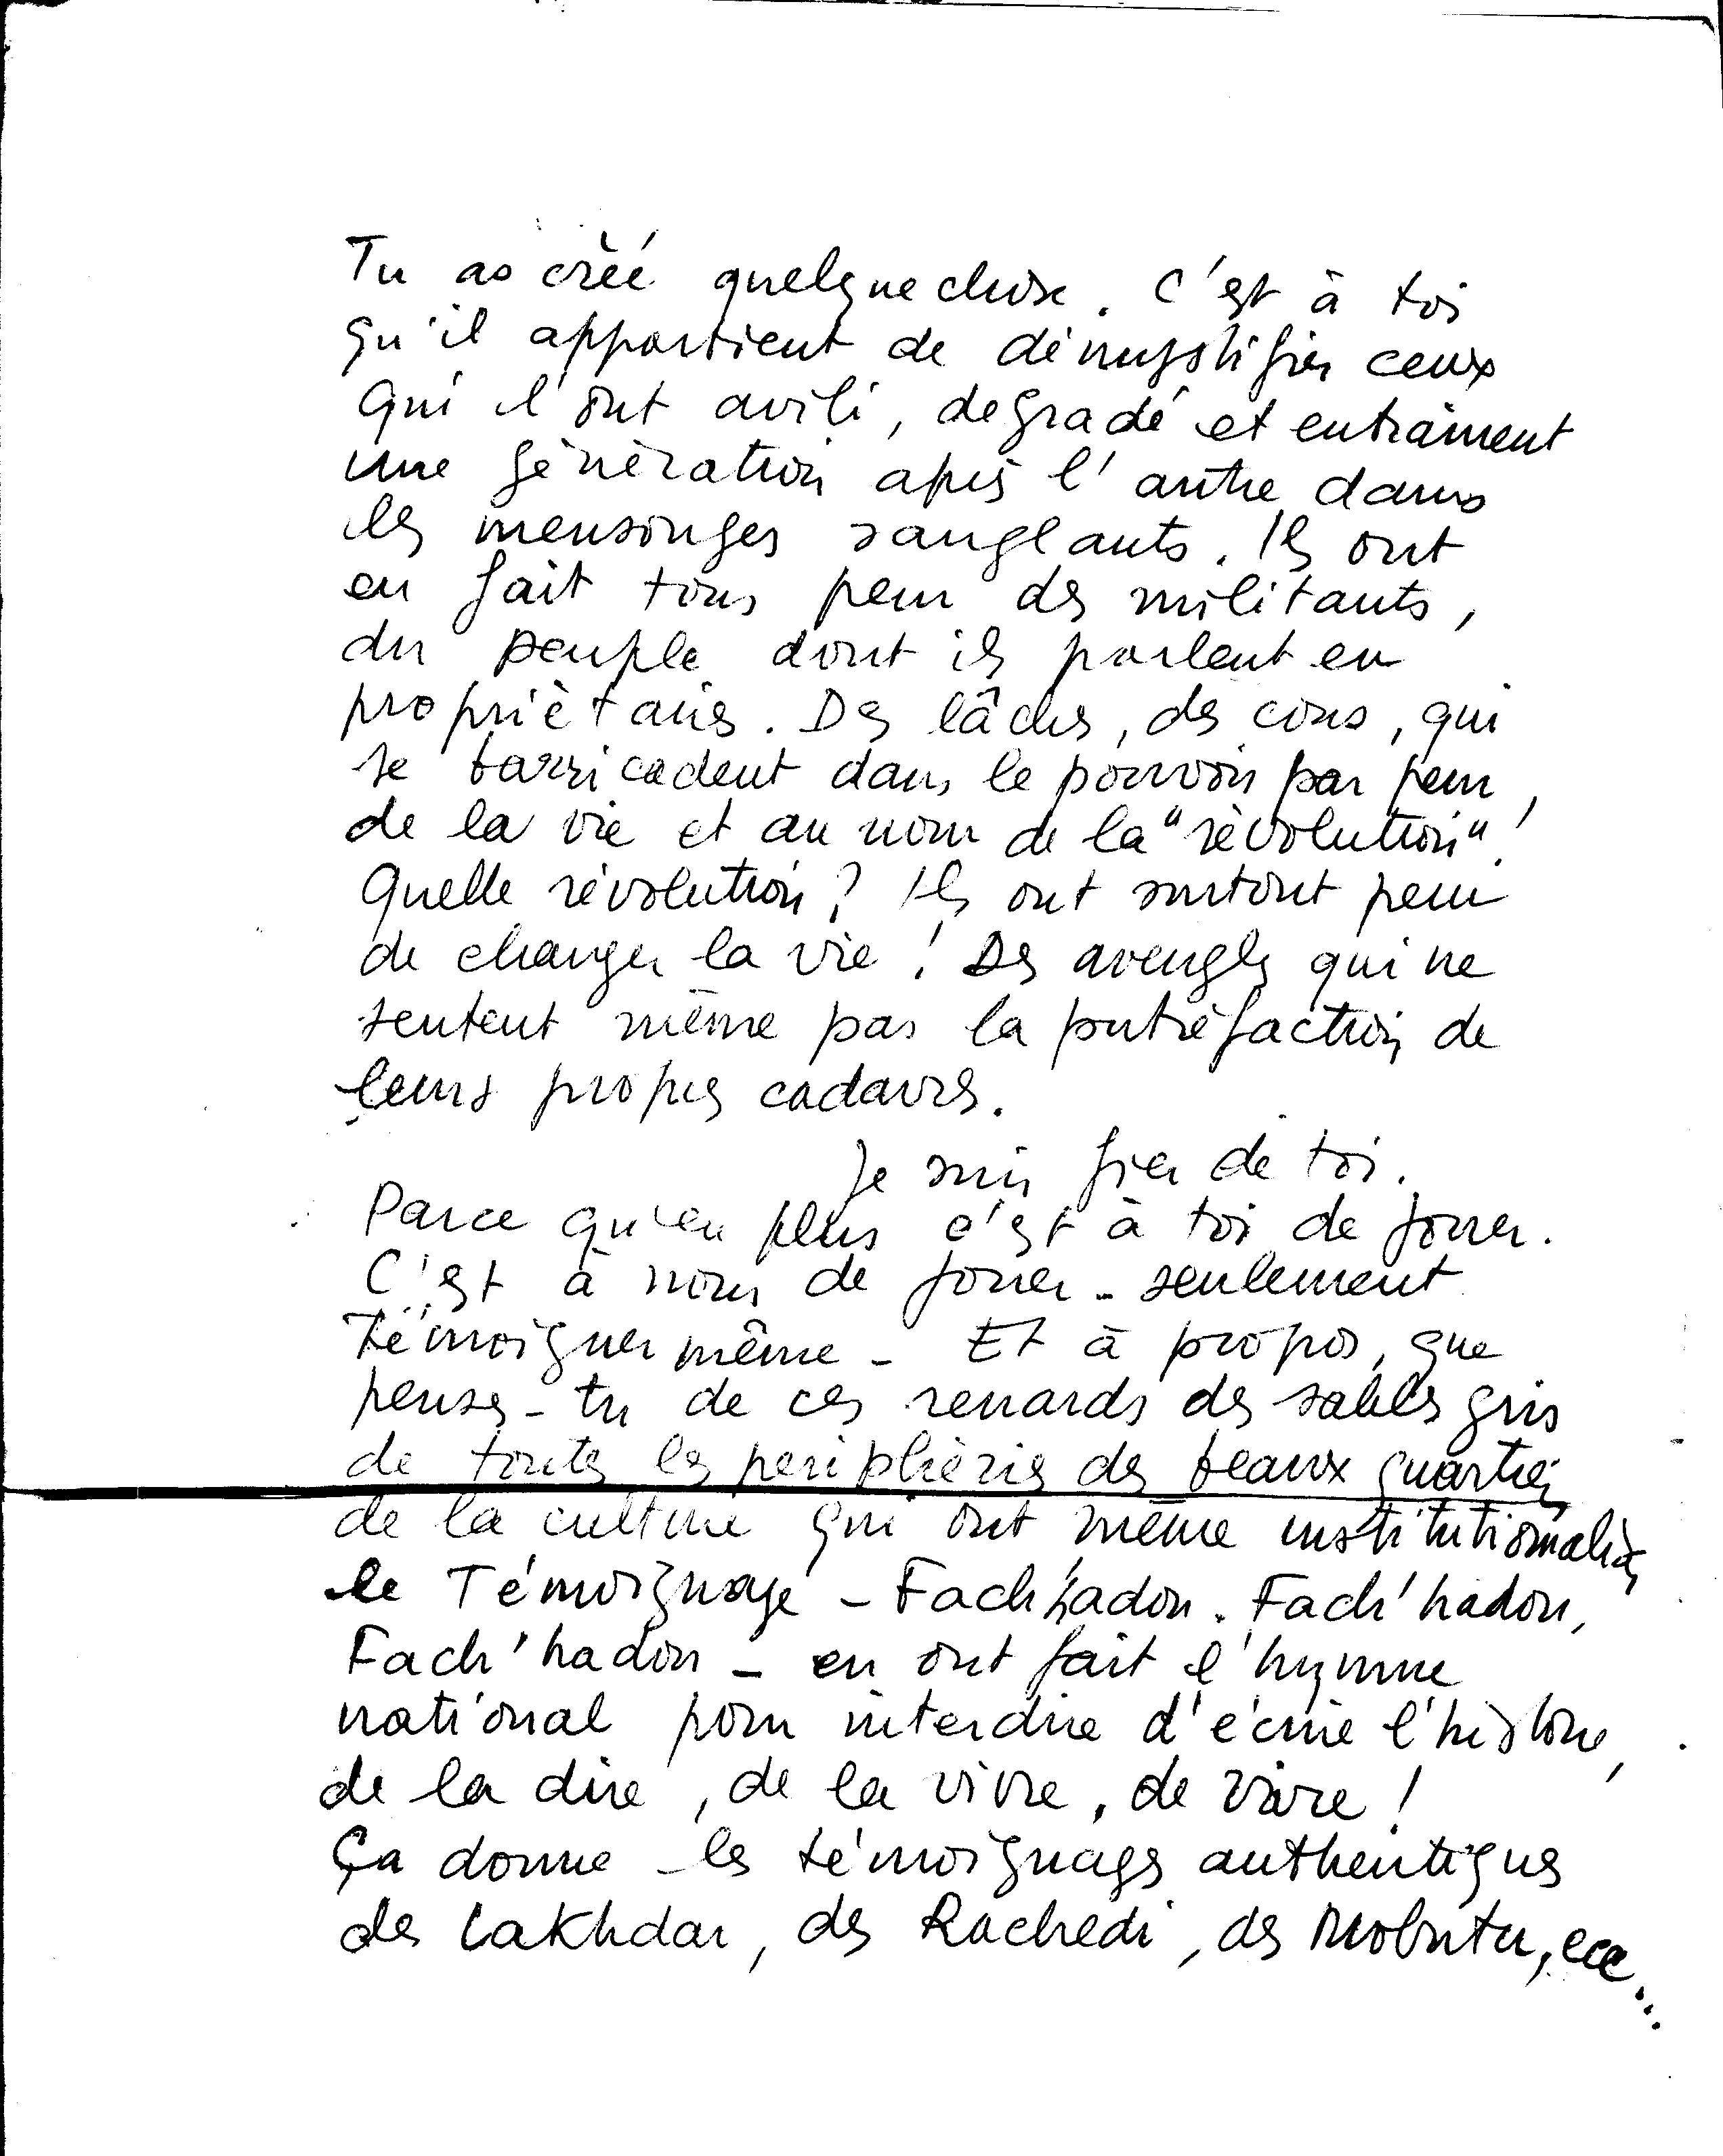 Tu as créé quelque chose. C'est à toi
qu'il appartient de démystifier ceux
qui l'ont avili, degradé et entraînent
une génération après l'autre dans
les mensonges sanglants. Ils ont
en fait tous peur des militants,
du peuple dont ils parlent en
propriétaires. Des lâches, des cons, qui
se barricadent dans le pouvoir par peur
de la vie et au nom de la "révolution"!
Quelle révolution? Ils ont surtout peur
de changer la vie! Des aveugles qui ne
sentent même pas la putréfaction de
leurs propres cadavres.
Je suis fier de toi.
Parce qu'en plus c'est à toi de jouer.
C'est à nous de jouer - seulement
témoigner même - Et à propos, que
penses-tu de ces renards des sables gris
de toutes les periphéries des beaux quartiers
de la culture qui ont même institutionnalisé
le Témoignage - Fach'hadou. Fach'hadou,
Fach'hadou - en ont fait l'hymne
national pour interdire d'écrire l'histoire,
de la dire, de la vivre, de vivre!
Ça donne les témoignages authentiques
des Lakhdar, des Rachedi, des Mobutu, ecc...